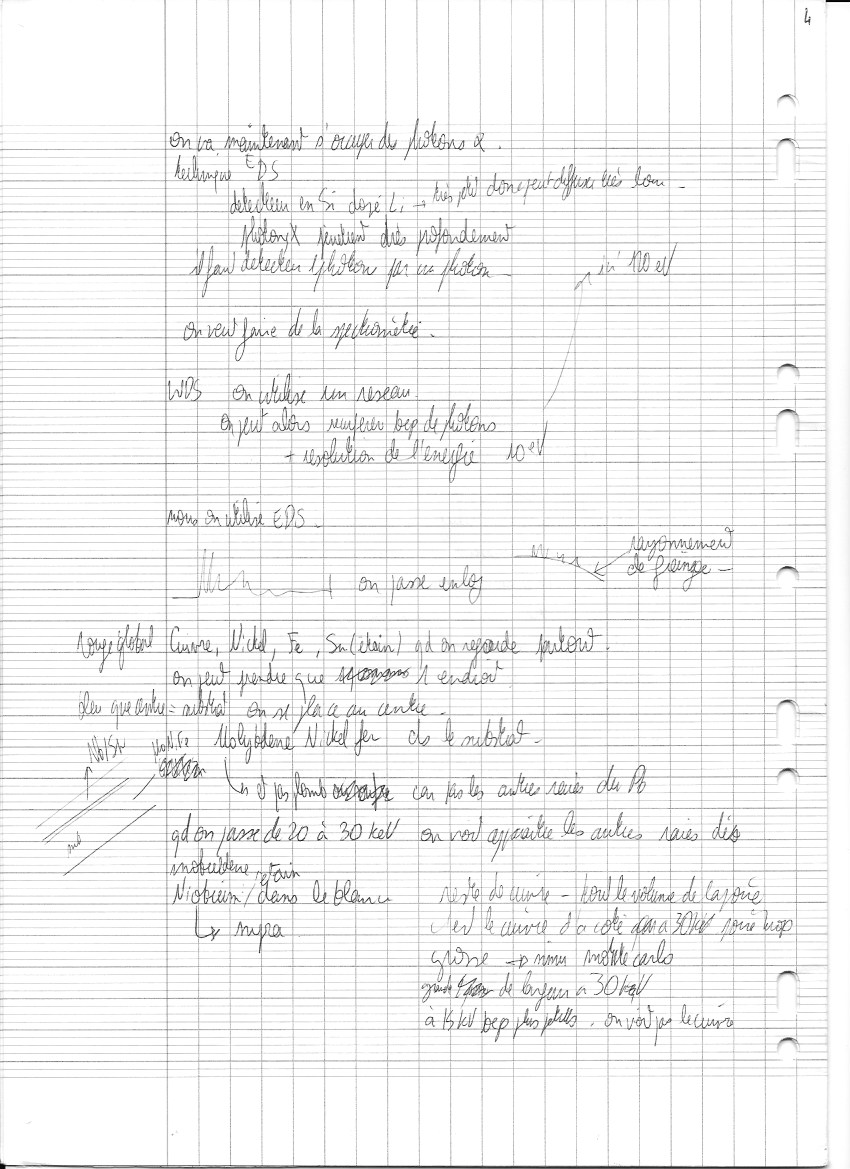 4
on va maintenant s'occuper des photons x.
technique EDS
détecteur en Si dopé Li → très ptit donc peut diffuser très loin
photons X pénètrent très profondément
il faut détecter 1 photon par un photon
ici 120 eV
on veut faire de la spectrométrie.
WDS on utilise un reseau.
on peut alors bcp de photons
+ resolution de l'énergie 10 eV
nous on utilise EDS.
rayonnement
de freinage
on passe en log
rouge global Cuivre, Nickel, Fe, Sn (étain) qd on regarde partout.
on peut prendre que 1 endroit
bleu que centre = substrat on se place au centre.
Nb/Sn Mo Ni Fe Molybdene Nickel fer ds le substrat
↳ et pas plomb car pas les autres raies du Pb
qd on passe de 20 à 30 keV on voit apparaître les autres raies du
molybdene
Niobium/étain dans le blanc
↳ supra
reste de cuivre - tout le volume de la poire
c'est le cuivre d'a coté a 30 kV poire trop
grosse → simu monte carlo
grande de largeur a 30 keV
à 15 kV bcp plus petite. on voit pas le cuivre